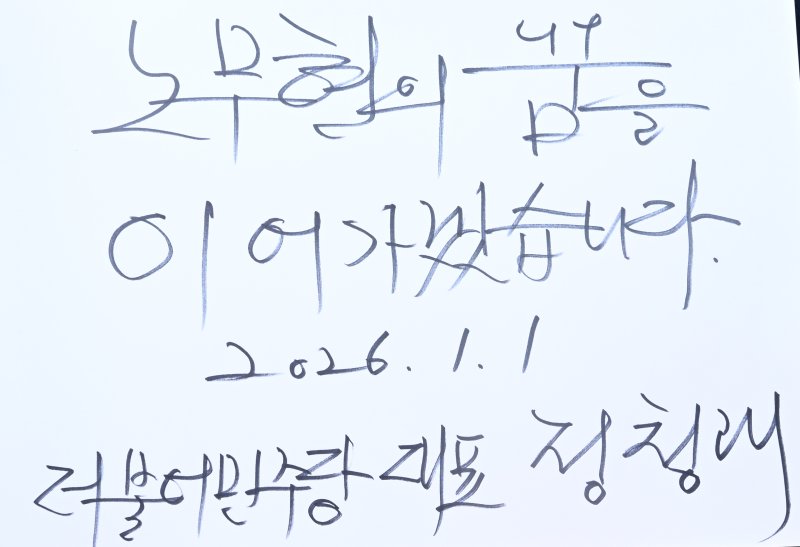 노무현의 꿈을
이어가겠습니다.
2026. 1. 1
더불어민주당 대표 정청래